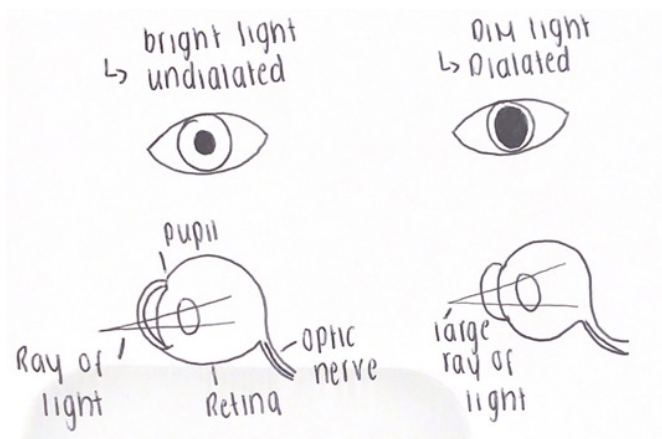 bright light
↳ undialated
DIM light
↳ Dialated
pupil
Ray of
light
Retina
optic
nerve
large
ray of
light